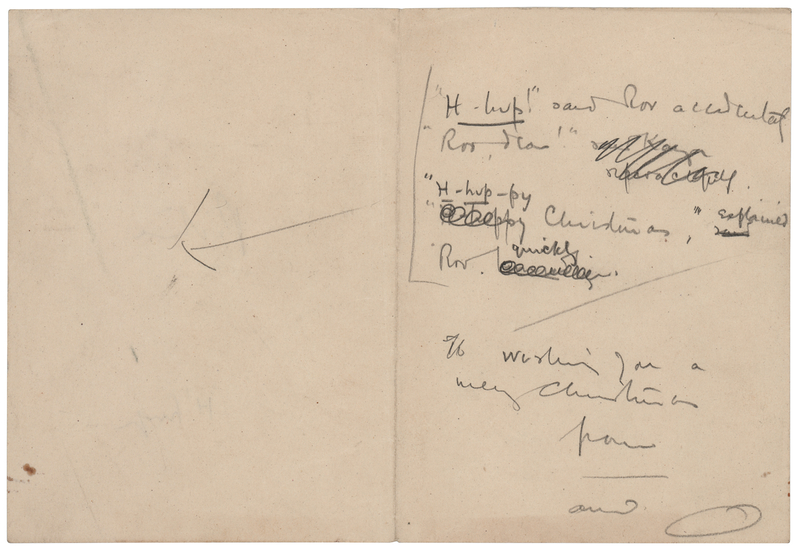 "H-hup!" said Roo accidentally
"Roo, dear!" said Kanga
reproachfully.
"H-hup-py
Happy Christmas," explained
quickly
Roo.
wishing you a
merry Christmas
from
and